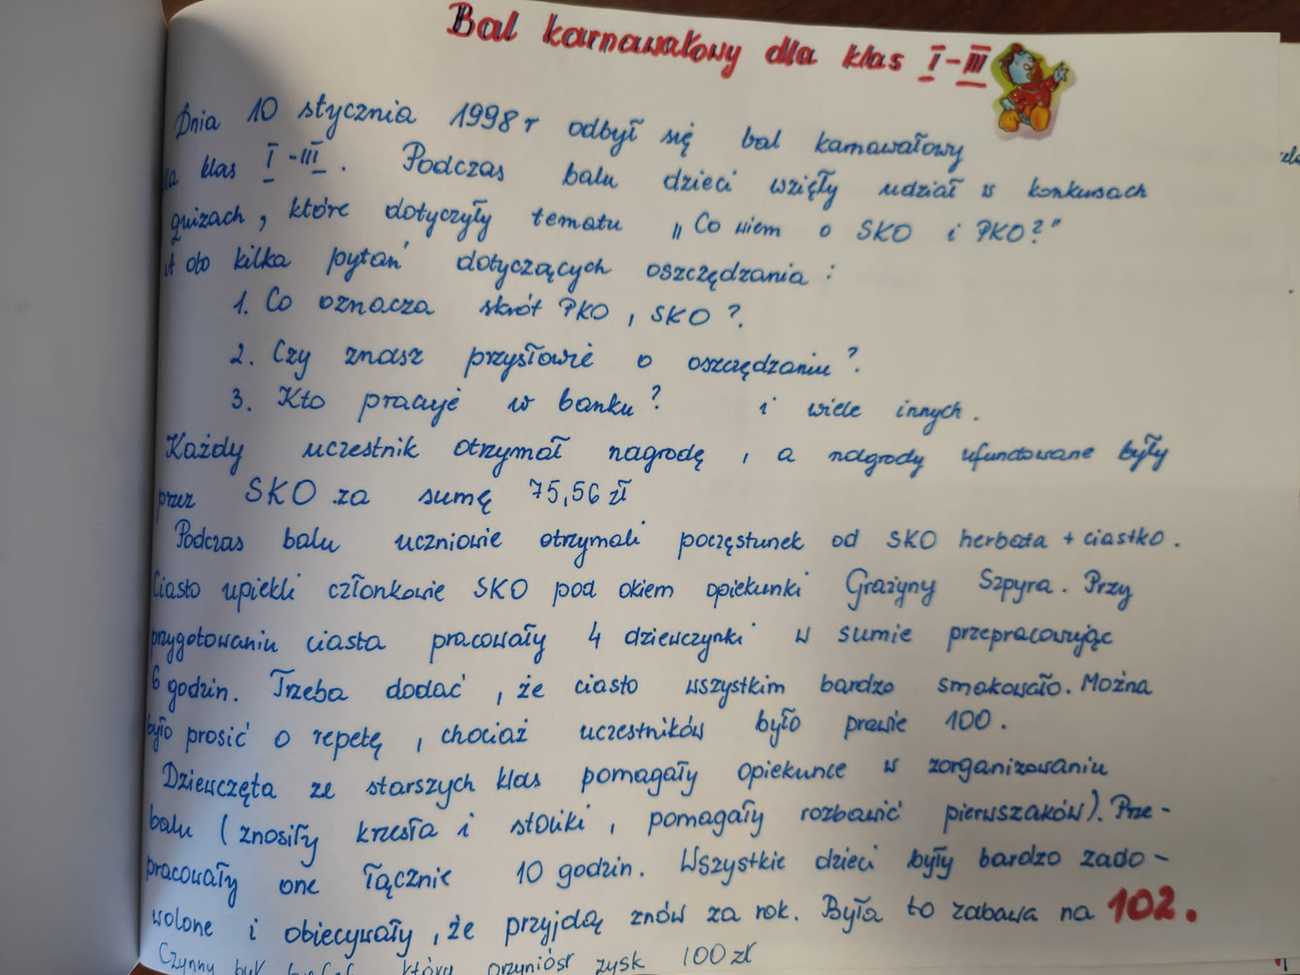 Bal karnawałowy dla klas I-III
Dnia 10 stycznia 1998 r odbył się bal karnawałowy
klas I-III. Podczas balu dzieci wzięły udział w konkursach
quizach, które dotyczyły tematu „Co wiem o SKO i PKO?"
oto kilka pytań dotyczących oszczędzania:
1. Co oznacza skrót PKO, SKO?.
2. Czy znasz przysłowie o oszczędzaniu?
3. Kto pracuje w banku? i wiele innych.
Każdy uczestnik otrzymał nagrodę, a nagrody ufundowane były
przez SKO za sumę 75,56 zł
Podczas balu uczniowie otrzymali poczęstunek od SKO herbata + ciastko.
Ciasto upiekli członkowie SKO pod okiem opiekunki Grażyny Szpyra. Przy
przygotowaniu ciasta pracowały 4 dziewczynki w sumie przepracowując
6 godzin. Trzeba dodać, że ciasto wszystkim bardzo smakowało. Można
było prosić o repetę, chociaż uczestników było prawie 100.
Dziewczęta ze starszych klas pomagały opiekunce w zorganizowaniu
balu (znosiły krzesła i stoliki, pomagały rozbawić pierwszaków). Prze-
pracowały one łącznie 10 godzin. Wszystkie dzieci były bardzo zado-
wolone i obiecywały, że przyjdą znów za rok. Była to zabawa na 102.
Czynny był który przyniósł zysk 100 zł